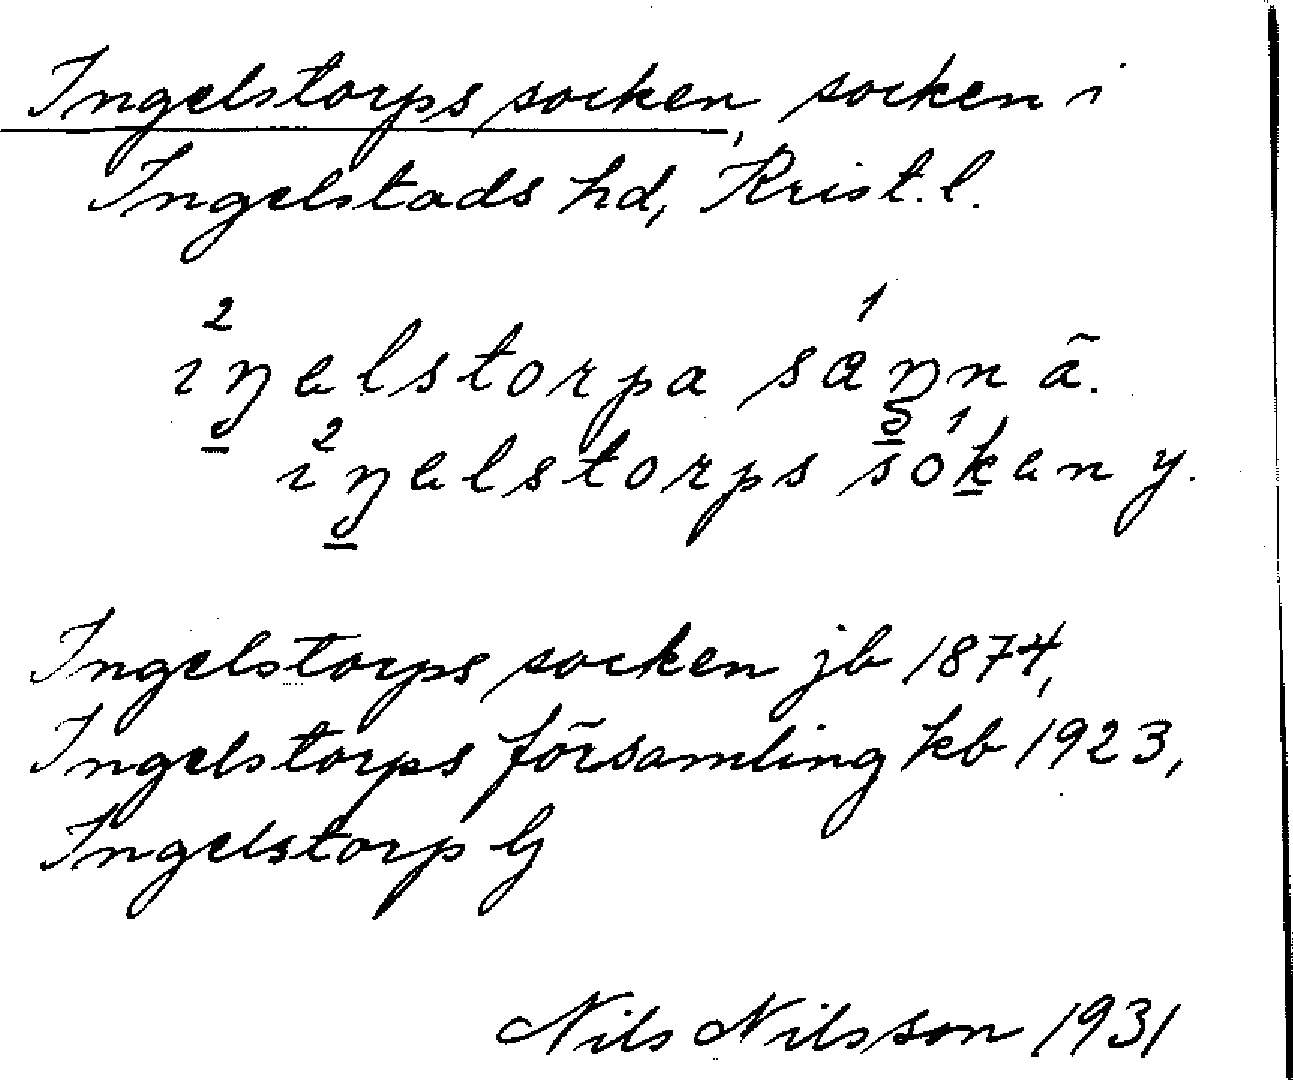 Ingelstorps socken, socken i
Ingelstads hd, Krist. l.
iŋelstorpa sæŋn ä.
iŋelstorps soken y.
Ingelstorps socken jb 1874,
Ingelstorps församling kb 1923,
Ingelstorp G
Nils Nilsson 1931